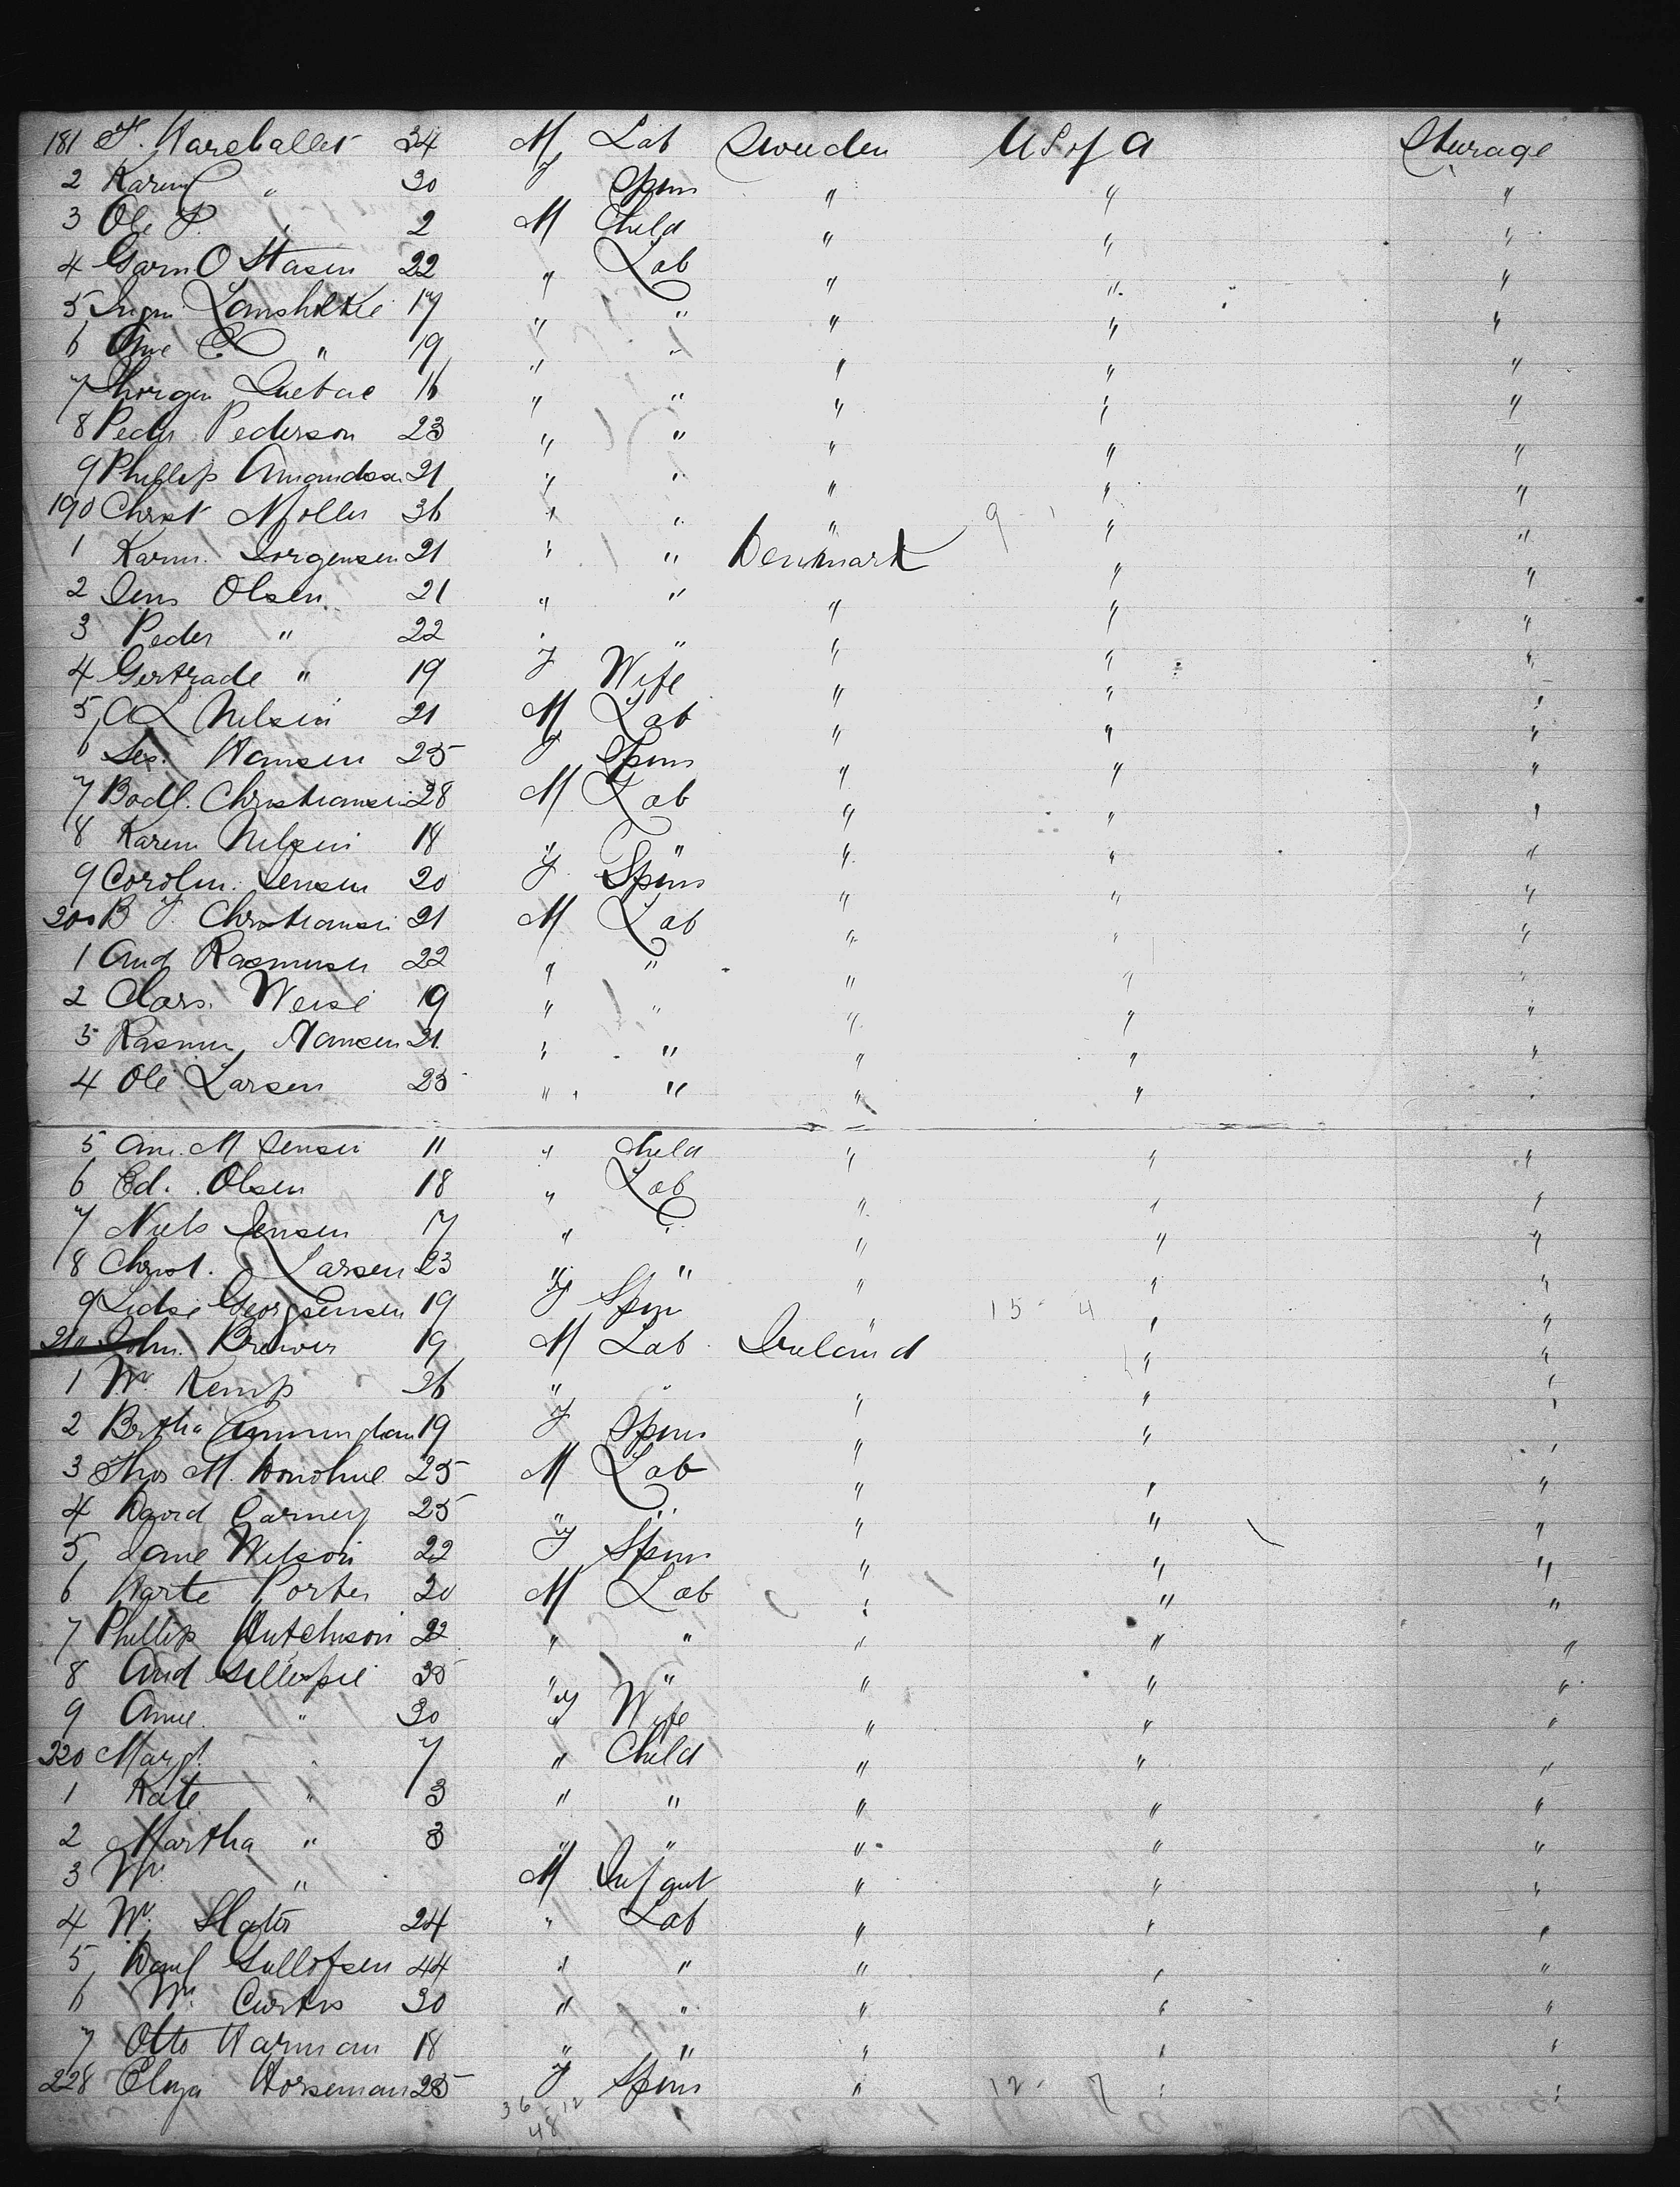 181 F. Hareballet 34 M Lab Sweden U S of A Steerage
2 Karen " 30 F Spins " " "
3 Ole P. " 2 M Child " " "
4 Garn O Stasen 22 " Lab " " "
5 17 " " " " "
6 Ane C " 19 " " " " "
7 Thorgen 16 " " " " "
8 Peder Pederson 23 " " " " "
9 Phillip Amandsen 21 " " " " "
190 Christ Moller 36 " " " " "
1 Karen. Jorgensen 21 " " Denmark " "
2 Jens Olsen 21 " " " " "
3 Peder " 22 " " " " "
4 Gertrade " 19 F Wife " " "
5 A L Nelsen 21 M Lab " " "
6 Hansen 25 F Spins " " "
7 Bodl. Christiansen 28 M Lab " " "
8 Karen Nelsen 18 " " " " "
9 Carolin. Jensen 20 F Spins " " "
200 B F Christiansen 21 M Lab " " "
1 And Rasmusen 22 " " " " "
2 Clars. Weise 19 " " " " "
3 Rasmus Hansen 21 " " " " "
4 Ole Larsen 25 " " " " "
5 Ane. M Jensen 11 " Child " " "
6 Ed. Olsen 18 " Lab " " "
7 Niels Jensen 17 " " " " "
8 Christ. Larsen 23 " " " " "
9 Georgensen 19 F Spin " 15 - 4 " "
210 John. Brower 19 M Lab Ireland " "
1 Wm Kemp 26 " " " " "
2 Bertha Cunningham 19 F Spins " " "
3 Thos M. Donohue 25 M Lab " " "
4 David Carney 25 " " " " "
5 Jane Wilson 22 F Spins " " "
6 Harte Porter 20 M Lab " " "
7 Phillip Hutchison 22 " " " " "
8 And Gillespie 35 " " " " "
9 Annie " 30 F Wife " " "
220 Margt. " 7 " Child " " "
1 Kate " 3 " " " " "
2 Martha " 3 " " " " "
3 Wm " M Infant " " "
4 Wm Slater 24 " Lab " " "
5 Danl Gullofsen 44 " " " " "
6 Wm Curtis 30 " " " " "
7 Otto Harman 18 " " " " "
228 Eliza Horseman 25 F Spins " 12 - 7 " "
36 - 12
48